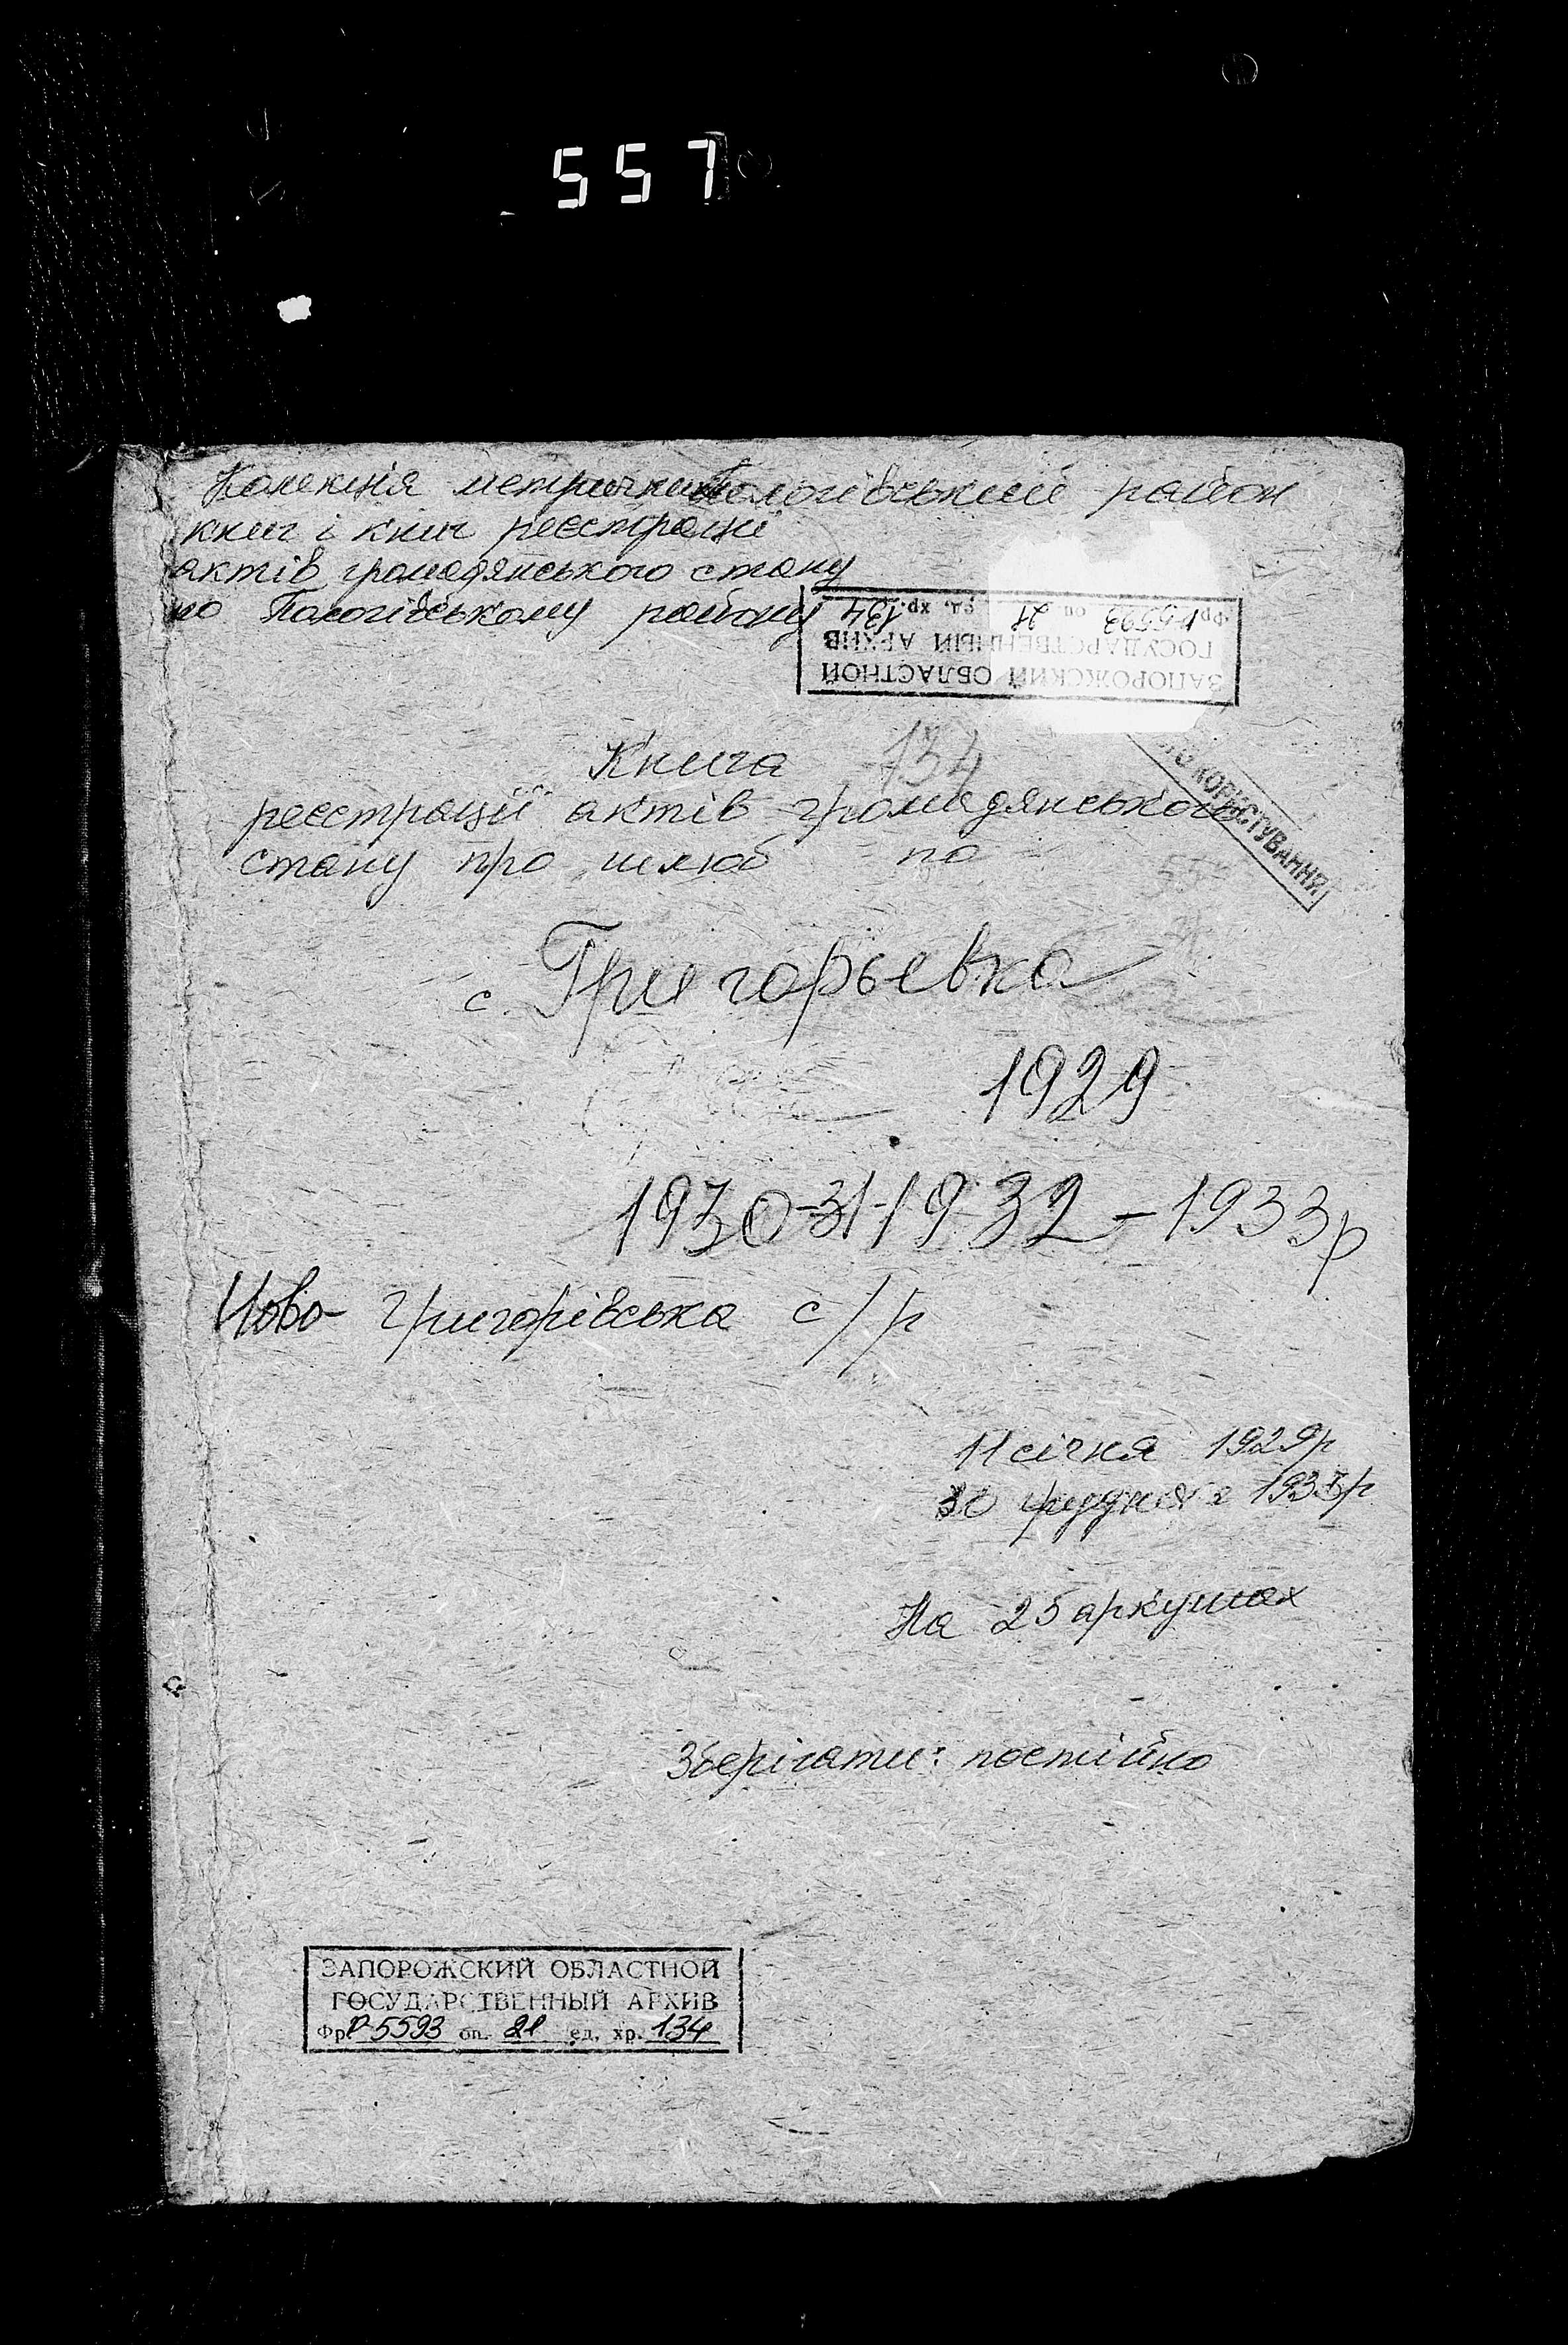 557
Колекція метричних Пологівський район
книг і книг реєстрації
актів громадянського стану
по Пологівському району
ЗАПОРОЖСКИЙ ОБЛАСТНОЙ
ГОСУДАРСТВЕННЫЙ АРХИВ
Фр. Р-5593 оп. 21 ед. хр. 134
134
Книга
КОРИСТУВАННЯ
реєстрації актів громадянського
стану про шлюб по
с. Григорьевка
1929
1930-31-1932-1933р
Ново-Григорівська с/р
11 січня 1929р
30 грудня 1933р
На 25 аркушах
Зберігати: постійно
ЗАПОРОЖСКИЙ ОБЛАСТНОЙ
ГОСУДАРСТВЕННЫЙ АРХИВ
Фр. Р-5593 оп. 21 ед. хр. 134